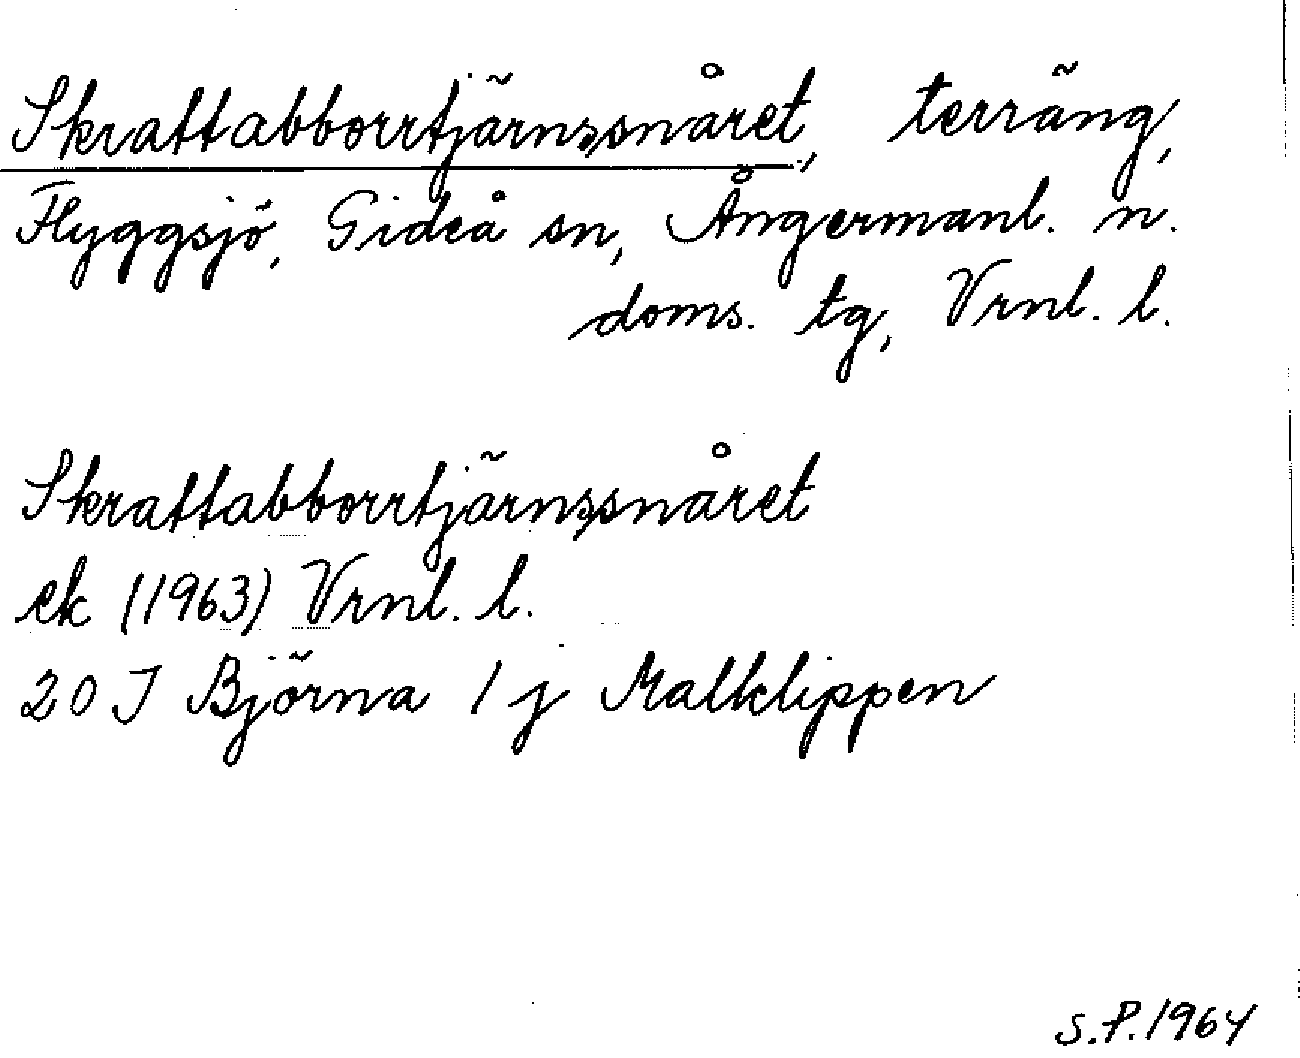 Skrattabborrtjärnssnåret, terräng,
Flyggsjö, Gideå sn, Ångermanl. n.
doms. tg, Vrnl. l.
Skrattabborrtjärnssnåret
ek (1963) Vrnl. l.
20 J Björna 1 j Malklippen
S.P. 1964